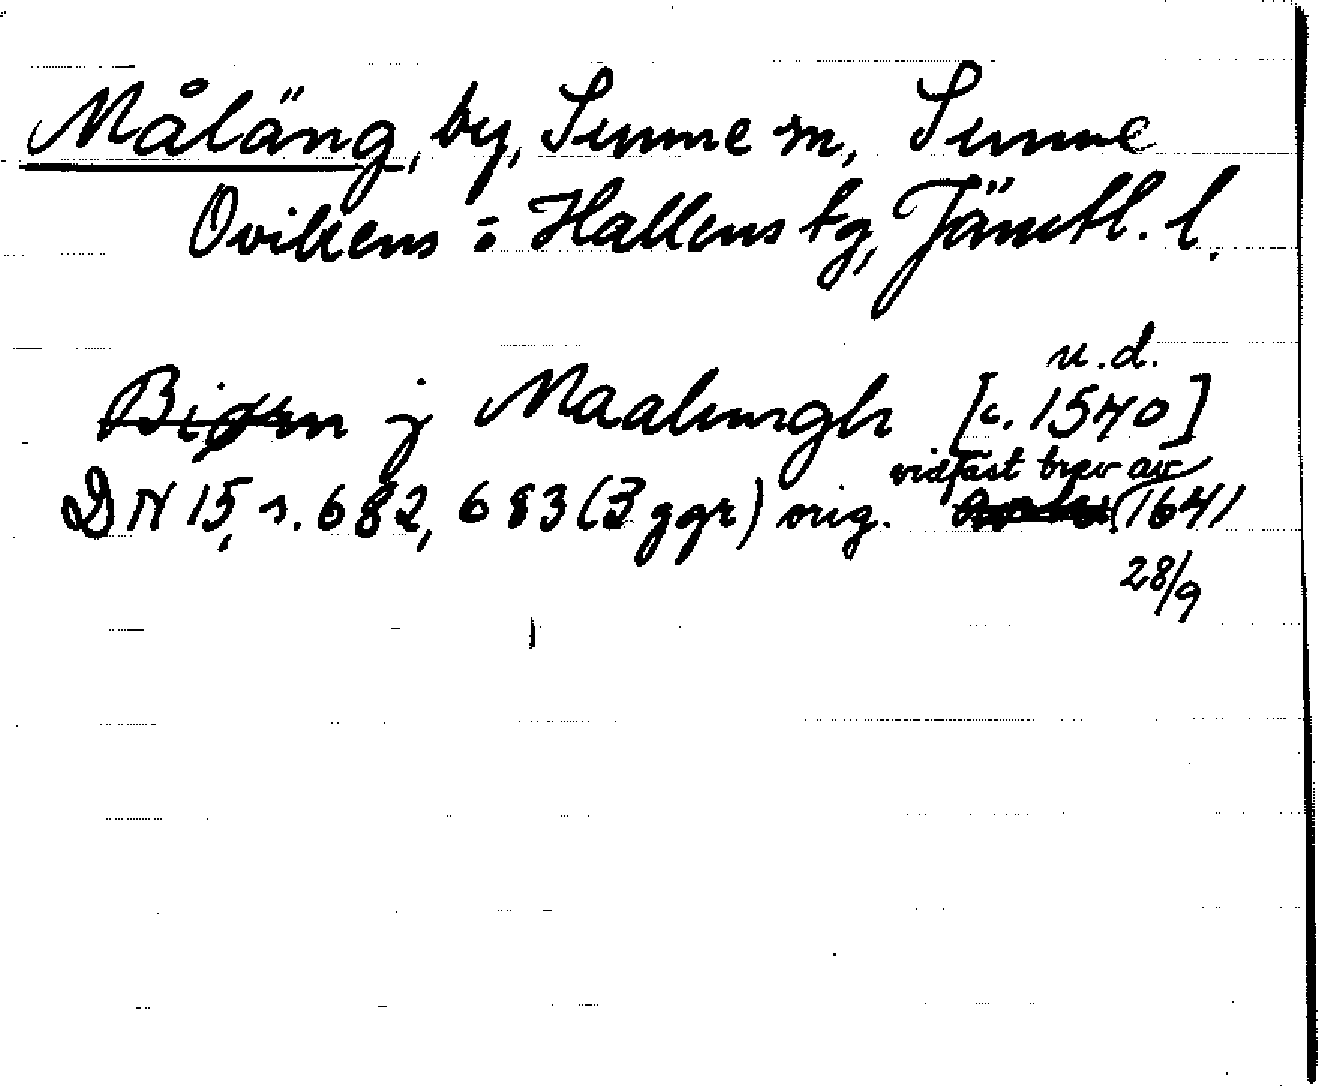 Måläng, by, Sunne sn, Sunne
Ovikens o. Hallens tg, Jämtl. l.
u.d.
Biørn j Maalengh [c. 1540]
vidfäst brev av
DN 15, s. 682, 683 (3 ggr) orig. 1641
28/9